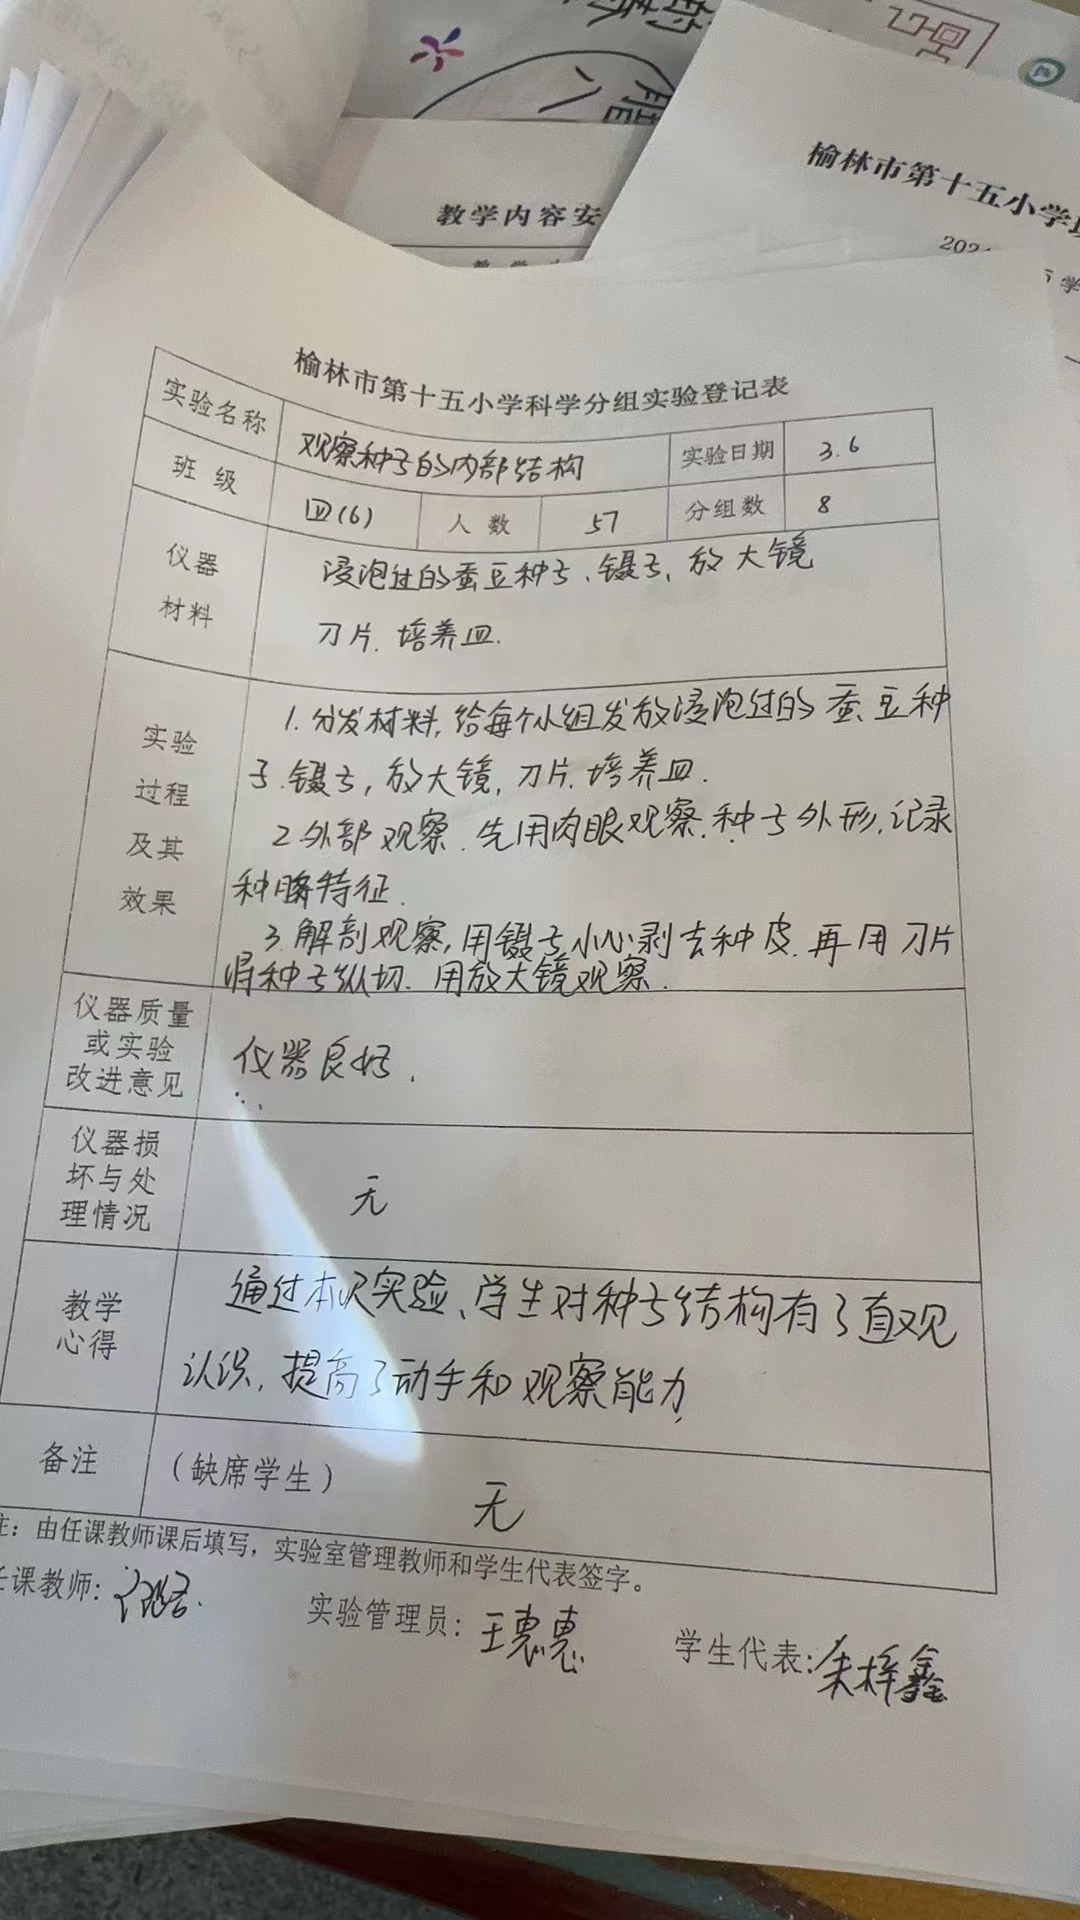 榆林市第十五小学
202
学
教学内容安
榆林市第十五小学科学分组实验登记表
实验名称 观察种子的内部结构 实验日期 3.6
班级 四(6) 人数 57 分组数 8
仪器 浸泡过的蚕豆种子、镊子、放大镜
材料 刀片、培养皿.
实验过程及其效果
1. 分发材料, 给每个小组发放浸泡过的蚕豆种
子、镊子, 放大镜, 刀片、培养皿.
2. 外部观察. 先用肉眼观察种子外形, 记录
种脐特征.
3. 解剖观察, 用镊子小心剥去种皮. 再用刀片
将种子纵切. 用放大镜观察.
仪器质量
或实验 仪器良好.
改进意见
仪器损
坏与处 无
理情况
教学 通过本次实验、学生对种子结构有了直观
心得 认识, 提高了动手和观察能力.
备注 (缺席学生) 无
注:由任课教师课后填写,实验室管理教师和学生代表签字。
任课教师: 实验管理员: 王惠惠 学生代表: 朱梓鑫